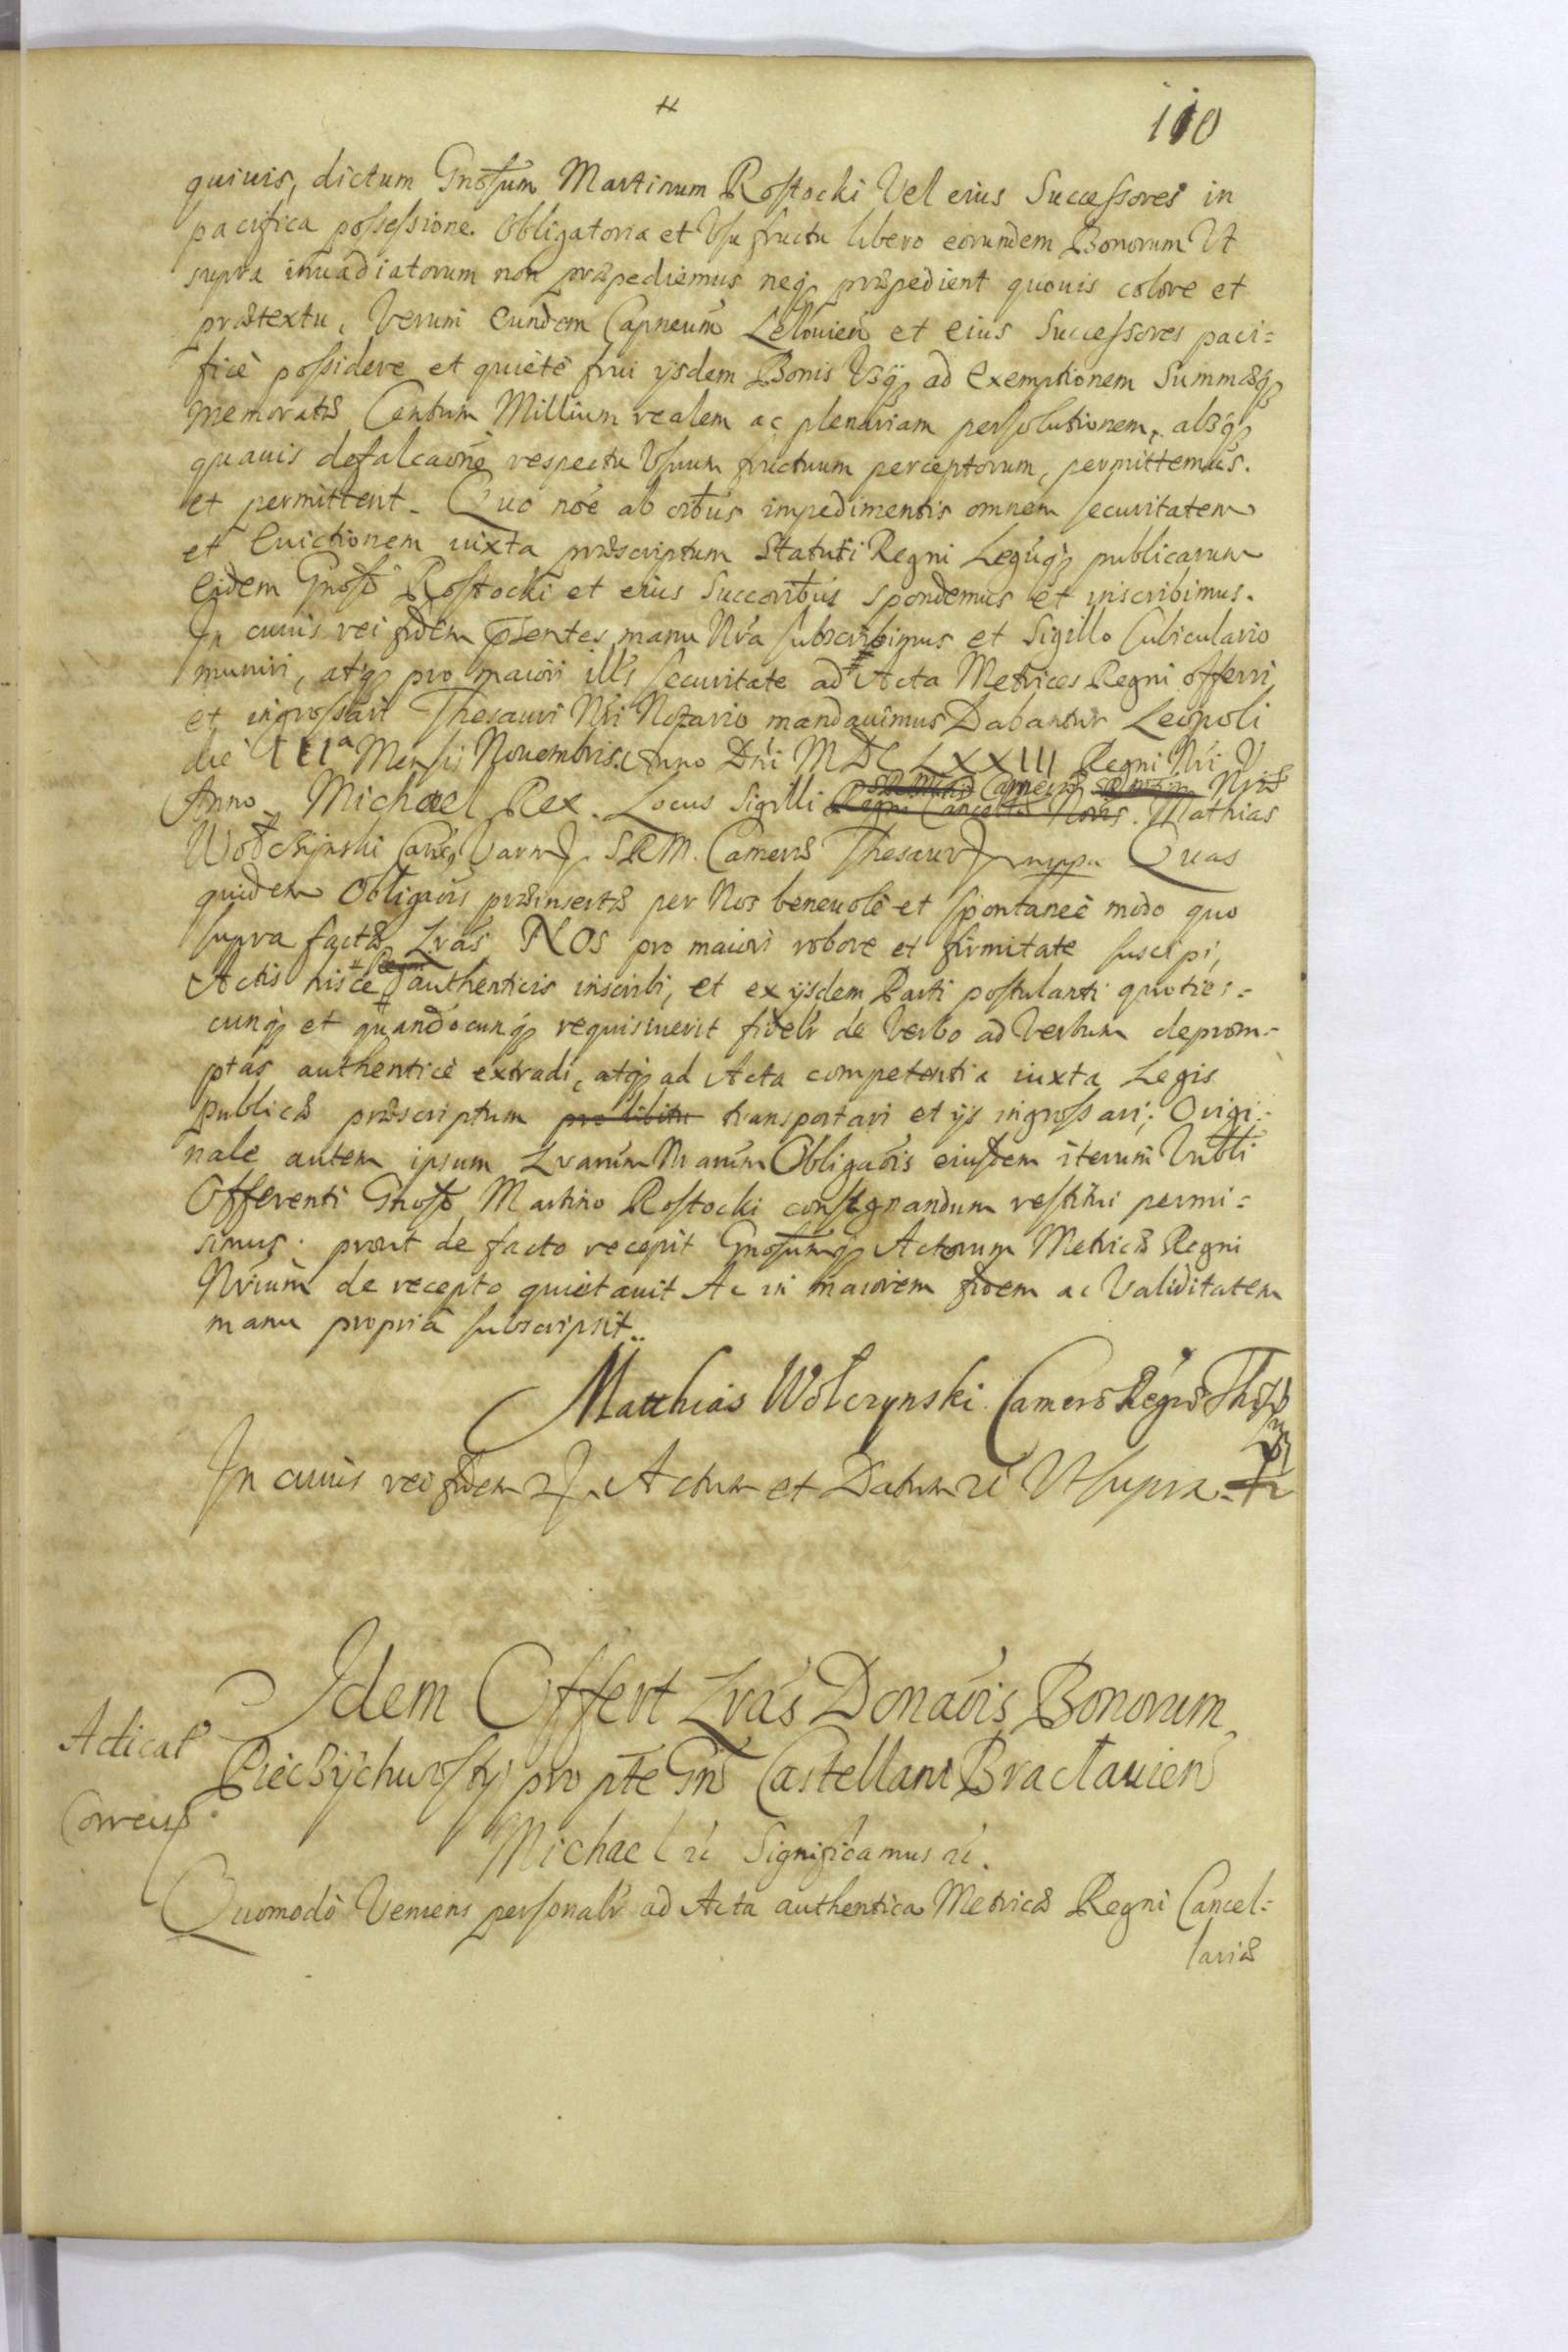 110
quiuis, dictum Gnosum Martinum Rostocki Vel eius Successores in
pacifica possessione Obligatoria et Vsu fructu libero eorundem Bonorum Vt
supra inuadiatorum non præpediemus neq præpedient quouis colore et
prætextu, Verum eundem Capneum Leloviens et eius Successores paci=
ficè possidere et quietè frui ijsdem Bonis Vsq ad exemptionem Summæq
memoratæ Centum Millium realem ac plenariam persolutionem, absq
quauis defalcaone respectu Vsuum fructuum perceptorum, permittemus.
et permittent. Quo noe ab oibus impedimentis omnem securitatem
et Euictionem iuxta præscriptum Statuti Regni Legúq publicarum
Eidem Gnoso Rostocki et eius Succoribus spondemus et inscribimus.
In cuius rei fidem pñtes manu Nra subscripsimus et Sigillo Cubiculario
muniri, atq pro maiori illis securitate ad Acta Metrices Regni offerri
et ingrossari Thesauri Nri Notario mandauimus Dabantur Leopoli
die III a Mensis Nouembris Anno Dni MDC LXXIII Regni Nri V
Anno Michael Rex. Locus Sigilli Cameræ Nræ Mathias
Wołczynski SRM. Cameræ Thesaur mpp Quas
quidem Obligaois præinsertæ per Nos beneuolè et spontaneè modo quo
supra factæ Lras NOS pro maiori robore et firmitate suscipi,
Actis hisce authenticis inscribi, et ex ijsdem Parti postulanti quoties=
cunq et quandocunq requisiuerit fidelr de Verbo ad Verbum deprom=
ptas authenticè extradi, atq ad Acta competentia iuxta Legis
publicæ præscriptum pro libitu transportari et ijs ingrossari; Origi=
nale autem ipsum Lrarum Nrarum Obligaois eiusdem iterum
Offerenti Gnoso Martino Rostocki consignandum restitui permi=
simus: prout de facto recepit Gnosumq Actorum Metricæ Regni
Nrium de recepto quietauit Ac in maiorem fidem ac Validitatem
manu propria subscripsit..
Matthias Wolczynski Cameræ Regiæ
In cuius rei fidem Actum et Datum Vt supra
Idem Offert Lras Donaois Bonorum
pro pte Gn Castellani Braclauien
Correcta
Michael Significamus
Quomodo Veniens personalr ad Acta authentica Metricæ Regni Cancel=
lariæ